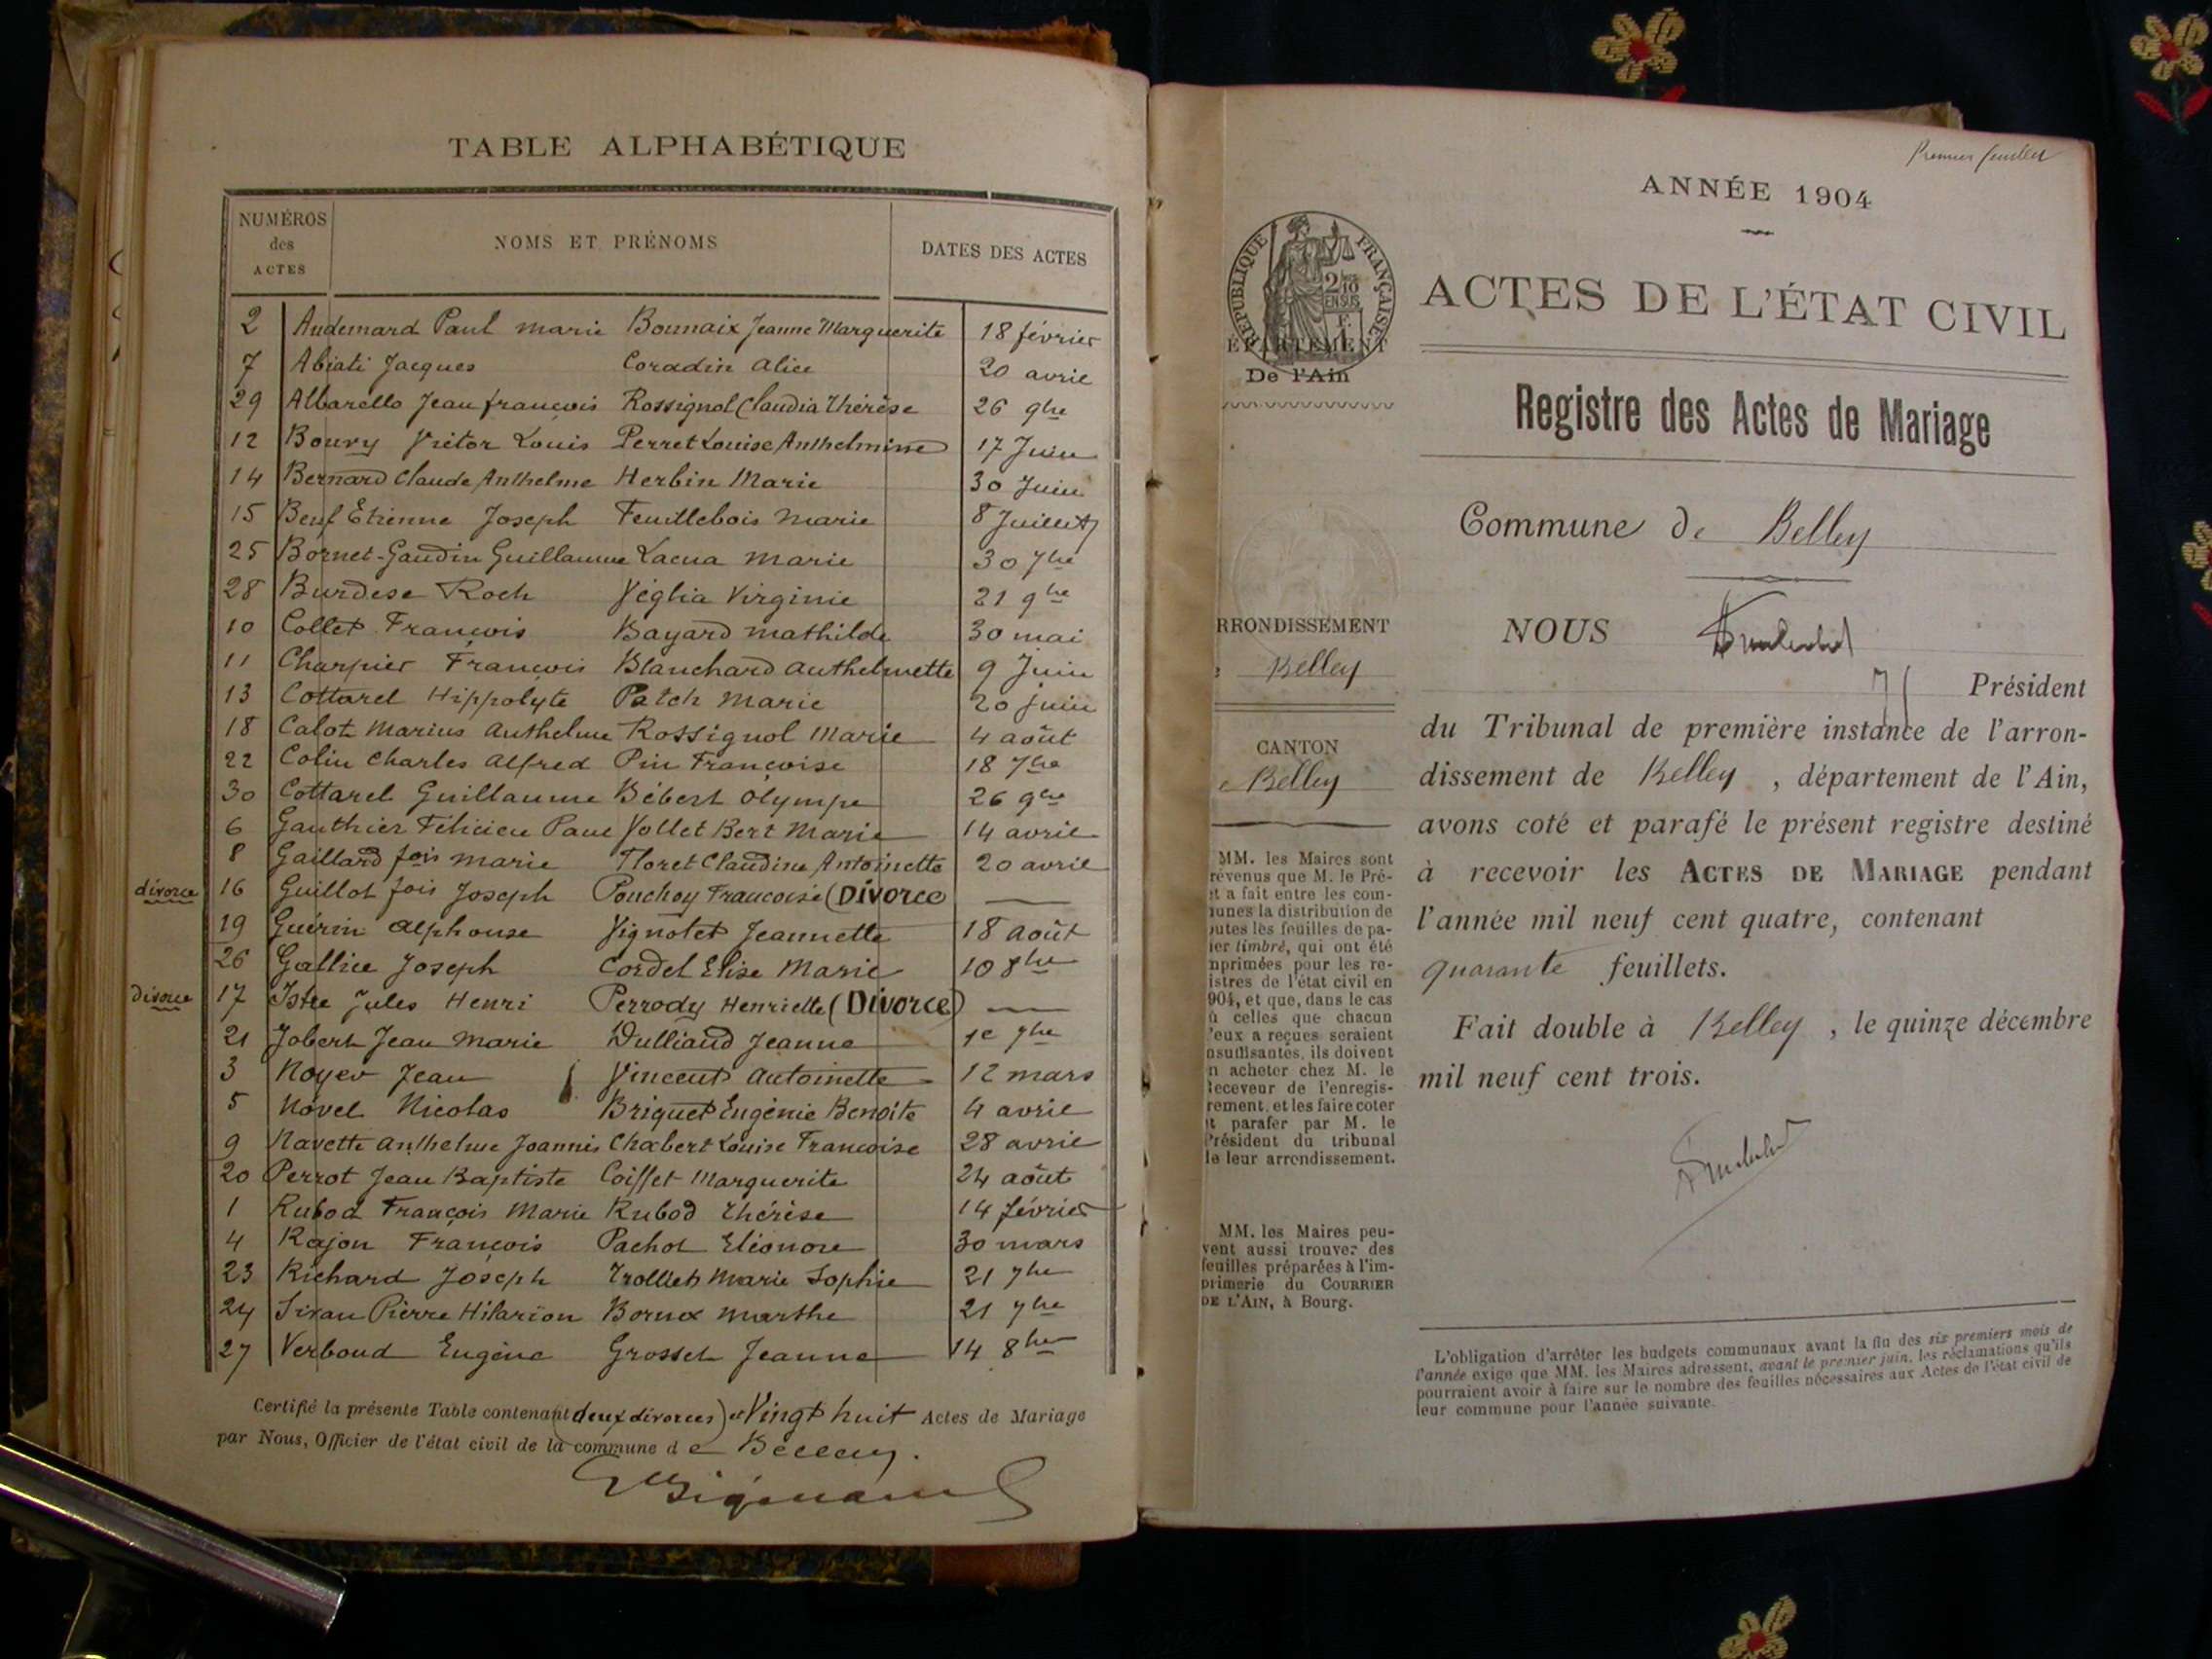 TABLE ALPHABÉTIQUE
NUMÉROS des ACTES NOMS ET PRÉNOMS DATES DES ACTES
2 Audemard Paul Marie Bounaix Jeanne Marguerite 18 février
7 Abiati Jacques Coradin Alice 20 avril
29 Albarello Jean François Rossignol Claudia Thérèse 26 9bre
12 Boury Victor Louis Perret Louise Anthelmine 17 Juin
14 Bernard Claude Anthelme Herbin Marie 30 Juin
15 Beuf Etienne Joseph Feuillebois Marie 8 Juillet
25 Bornet-Gaudin Guillaume Lacua Marie 30 7bre
28 Burdese Roch Véglia Virginie 21 9bre
10 Collet François Bayard Mathilde 30 mai
11 Charpier François Blanchard Anthelmette 9 Juin
13 Cottarel Hippolyte Patch Marie 20 juin
18 Calot Marius Anthelme Rossignol Marie 4 août
22 Colin Charles Alfred Pin Françoise 18 7bre
30 Cottarel Guillaume Bébert Olympe 26 9bre
6 Gauthier Félicien Paul Vollet Bert Marie 14 avril
8 Gaillard fois Marie Floret Claudine Antoinette 20 avril
divorce 16 Guillot fois Joseph Ponchoy Francoise (Divorce
19 Guérin Alphonse Vignolet Jeannette 18 août
26 Gallice Joseph Cordel Elise Marie 10 8bre
divorce 17 Istre Jules Henri Perrody Henriette (Divorce)
21 Jobert Jean Marie Dulliand Jeanne 1e 7bre
3 Noyer Jean Vincent Antoinette 12 mars
5 Novel Nicolas Briquet Eugénie Benoite 4 avril
9 Navette Anthelme Joannis Chabert Louise Francoise 28 avril
20 Perrot Jean Baptiste Coiffet Marguerite 24 août
1 Rubod François Marie Rubod Thérèse 14 février
4 Rajon François Pachot Eléonore 30 mars
23 Richard Joseph Trolliet Marie Sophie 21 7bre
24 Sivan Pierre Hilarion Bornex Marthe 21 7bre
27 Verboud Eugène Grosset Jeanne 14 8bre
Certifié la présente Table contenant (deux divorces) et Vingt huit Actes de Mariage
par Nous, Officier de l'état civil de la commune de Belley.
Premier feuillet
ANNÉE 1904
RÉPUBLIQUE FRANÇAISE
2/10 EN SUS
ÉPARTEMENT
De l'Ain
ACTES DE L'ÉTAT CIVIL
Registre des Actes de Mariage
Commune de Belley
RRONDISSEMENT
Belley
CANTON
Belley
MM. les Maires sont
révenus que M. le Pré-
et a fait entre les com-
unes la distribution de
outes les feuilles de pa-
ier timbré, qui ont été
mprimées pour les re-
istres de l'état civil en
904, et que, dans le cas
ù celles que chacun
'eux a reçues seraient
nsuffisantes, ils doivent
n acheter chez M. le
Receveur de l'enregis-
rement, et les faire coter
t parafer par M. le
Président du tribunal
de leur arrondissement.
MM. les Maires peu-
vent aussi trouver des
feuilles préparées à l'im-
primerie du COURRIER
DE L'AIN, à Bourg.
NOUS
Président
du Tribunal de première instance de l'arron-
dissement de Belley, département de l'Ain,
avons coté et parafé le présent registre destiné
à recevoir les ACTES DE MARIAGE pendant
l'année mil neuf cent quatre, contenant
quarante feuillets.
Fait double à Belley, le quinze décembre
mil neuf cent trois.
L'obligation d'arrêter les budgets communaux avant la fin des six premiers mois de
l'année exige que MM. les Maires adressent, avant le premier juin, les réclamations qu'ils
pourraient avoir à faire sur le nombre des feuilles nécessaires aux Actes de l'état civil de
leur commune pour l'année suivante.